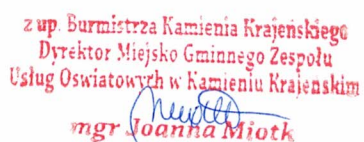 z up. Burmistrza Kamienia Krajeńskiego
Dyrektor Miejsko Gminnego Zespołu
Usług Oswiatowych w Kamieniu Krajenskim
mgr Joanna Miotk